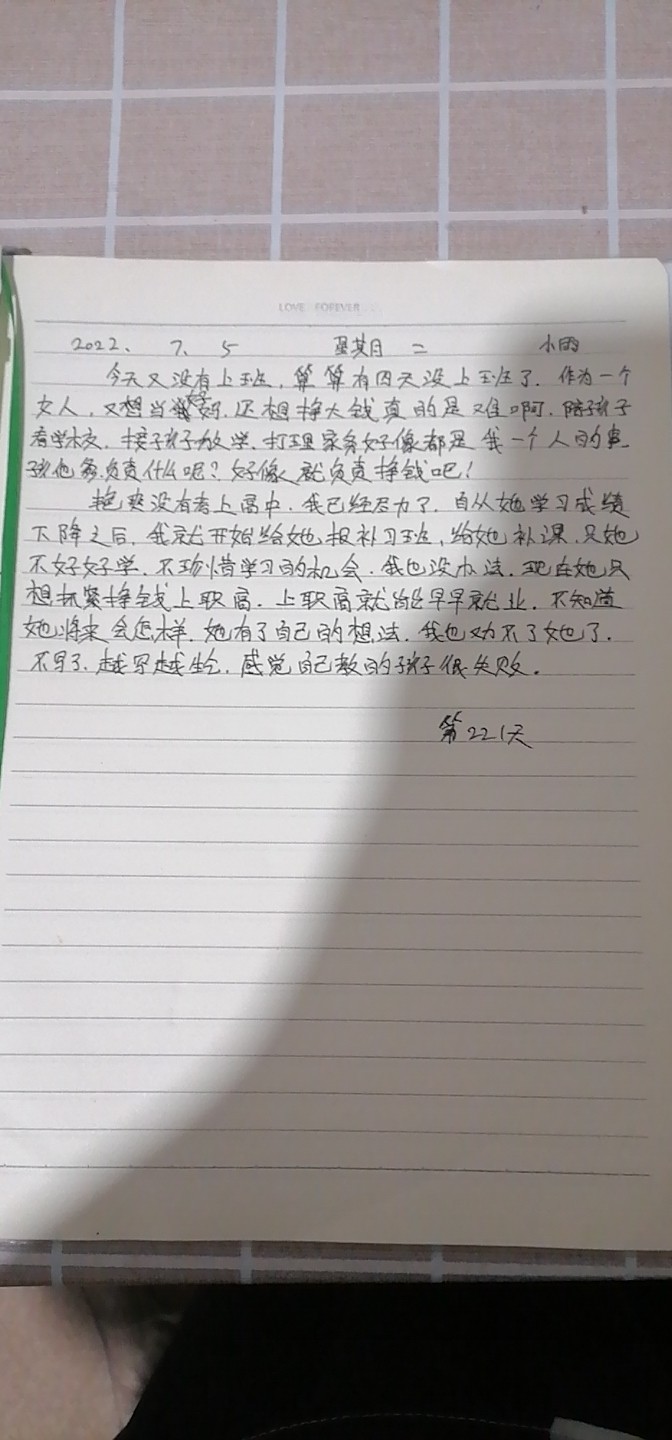 LOVE FOREVER
2022、 7、 5 星其日 二 小雨
今天又没有上班，算算有四天没上班了．作为一个
女人，又想当好妈，还想挣大钱真的是难啊，陪孩子
看学校，接孩子放学，打理家务好像都是我一个人的事，
孩他爹负责什么呢？好像就负责挣钱吧！
艳爽没有考上高中，我已经尽力了，自从她学习成绩
下降之后，我就开始给她报补习班，给她补课，只她
不好好学，不珍惜学习的机会，我也没办法，现在她只
想抓紧挣钱上职高，上职高就能早早就业，不知道
她将来会怎样，她有了自己的想法，我也劝不了她了．
不写了，越写越生气，感觉自己教的孩子很失败。
第221天